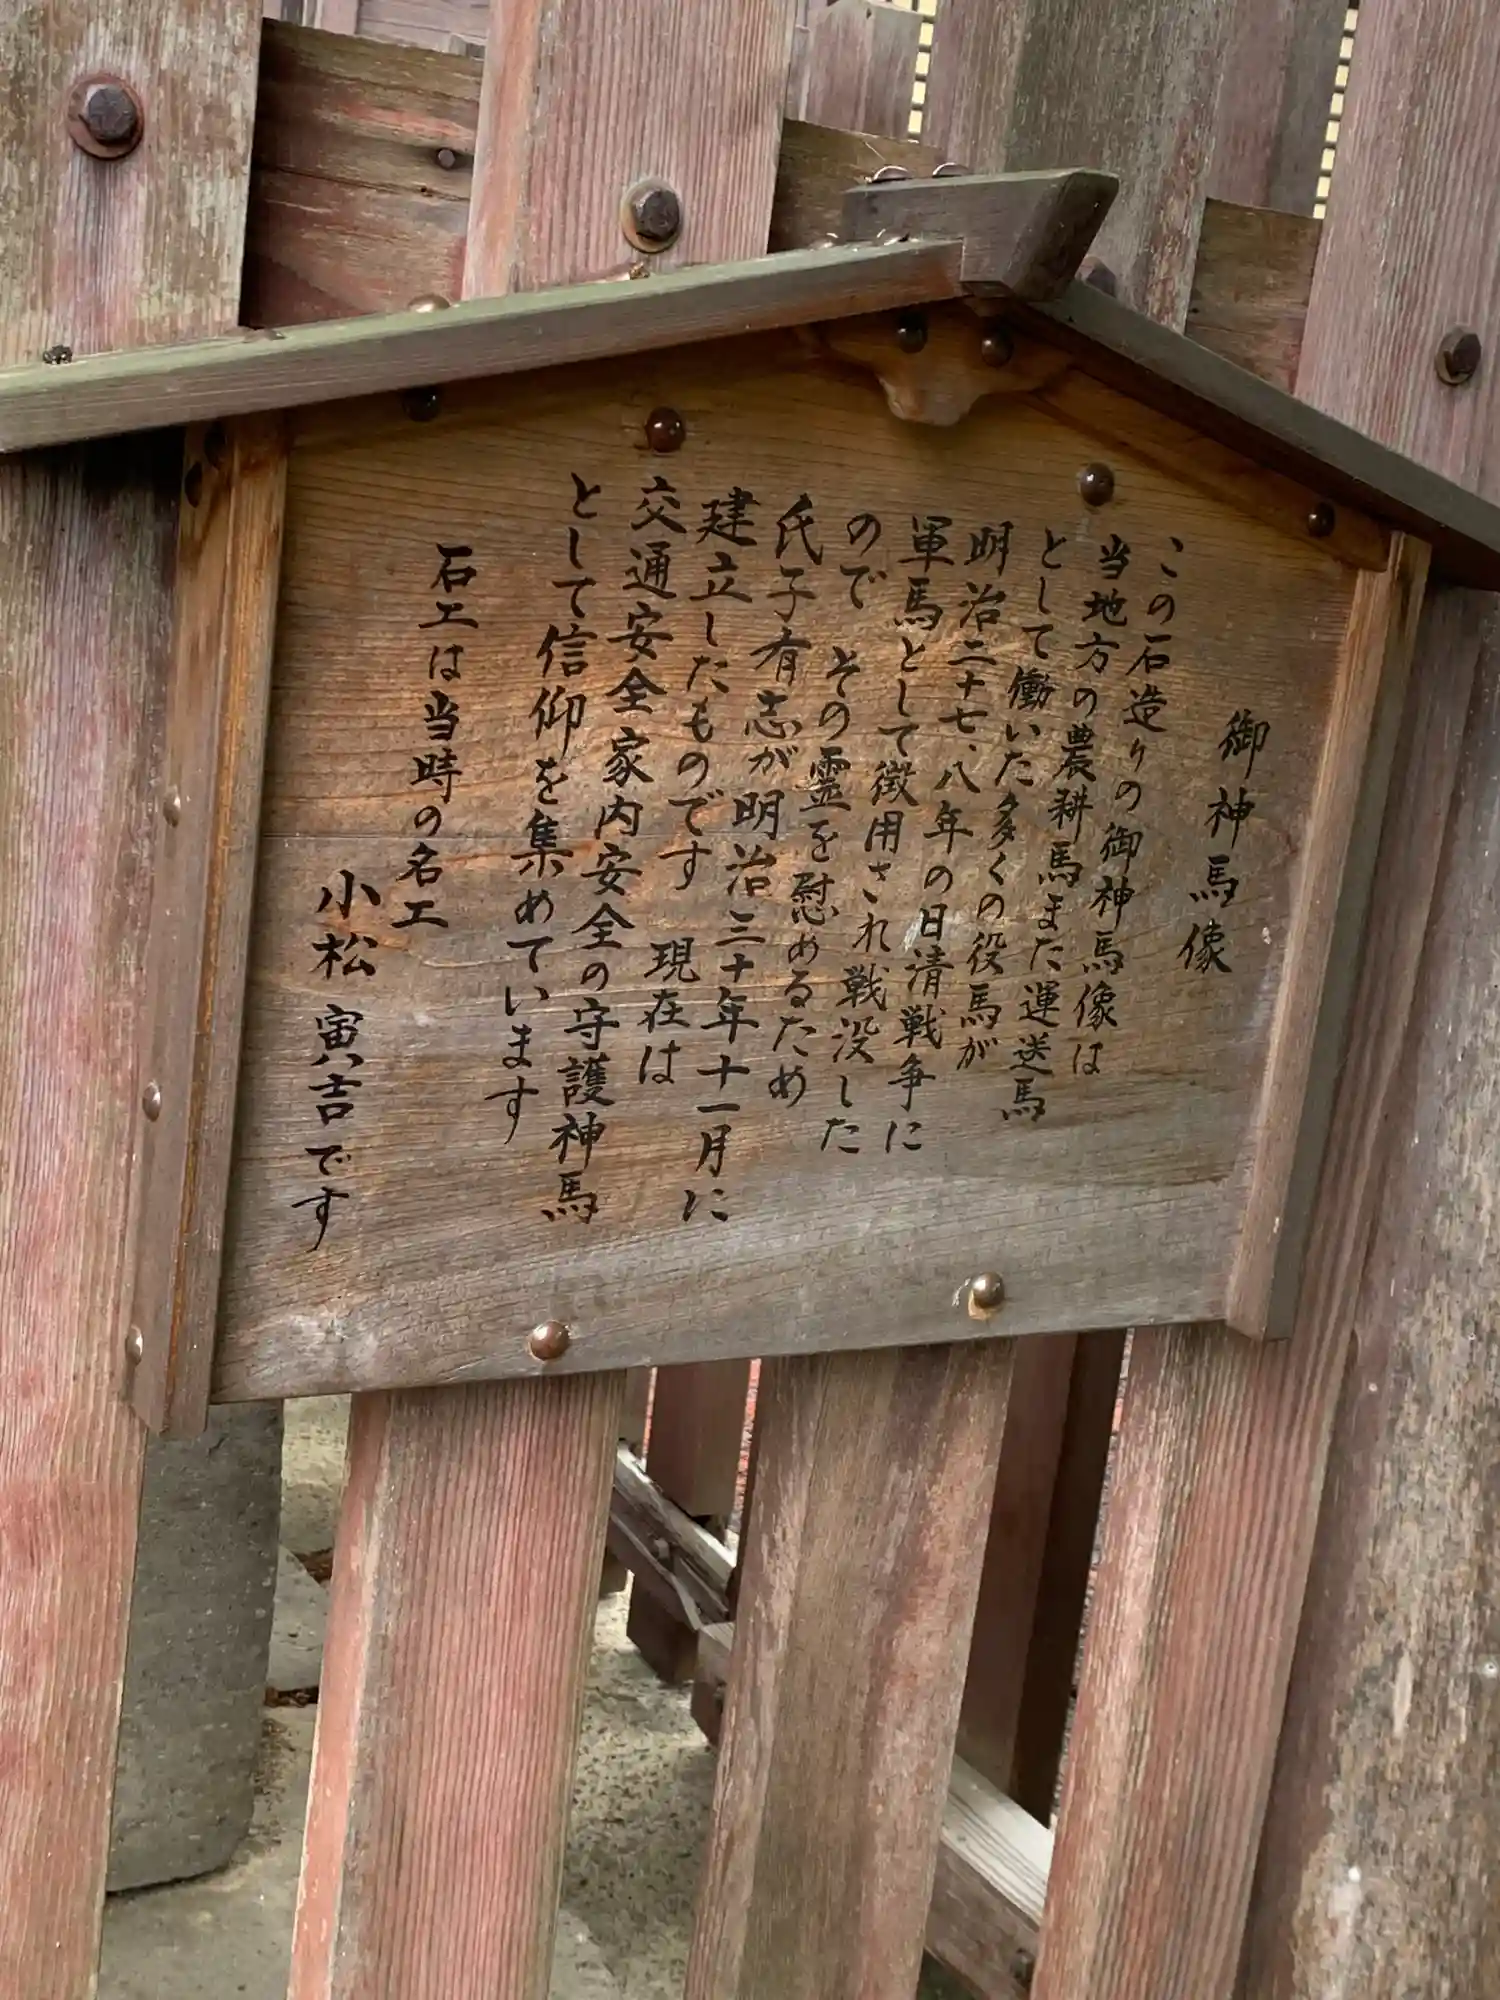 御神馬像
この石造りの御神馬像は
当地方の農耕馬また運送馬
として働いた多くの役馬が
明治二十七、八年の日清戦争に
軍馬として徴用され戦没した
のでその霊を慰めるため
氏子有志が明治三十年十一月に
建立したものです 現在は
交通安全家内安全の守護神馬
として信仰を集めています
石工は当時の名工
小松寅吉です